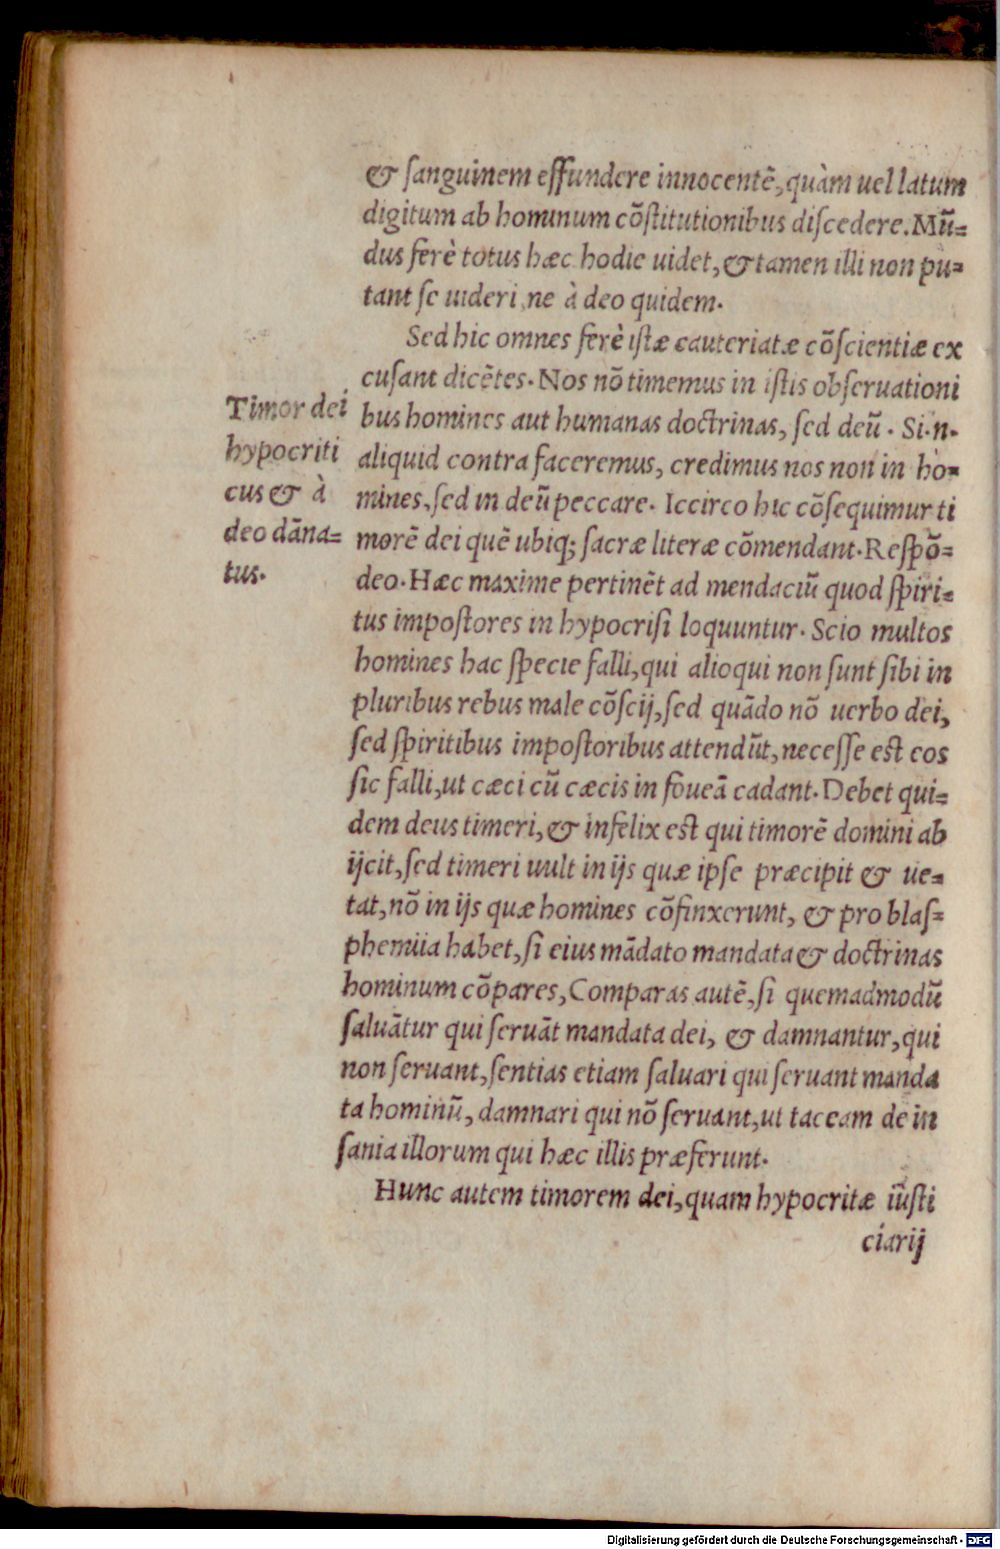 & ſanguinem effundere innocentẽ, quàm uel latum
digitum ab hominum cõſtitutionibus diſcedere. Mũ=
dus ferè totus hæc hodie uidet, & tamen illi non pu=
tant ſe uideri, ne à deo quidem.
Sed hic omnes ferè iſtæ cauteriatæ cõſcientiæ ex
cuſant dicẽtes. Nos nõ timemus in iſtis obſeruationi
bus homines aut humanas doctrinas, ſed deũ. Si.n.
aliquid contra faceremus, credimus nos non in ho=
mines, ſed in deũ peccare. Iccirco hic cõſequimur ti
morẽ dei quẽ ubiq; ſacræ literæ cõmendant. Reſpõ=
deo. Hæc maxime pertinẽt ad mendaciũ quod ſpiri=
tus impoſtores in hypocriſi loquuntur. Scio multos
homines hac ſpecie falli, qui alioqui non ſunt ſibi in
pluribus rebus male cõſcij, ſed quãdo nõ uerbo dei,
ſed ſpiritibus impoſtoribus attendũt, neceſſe eſt eos
ſic falli, ut cæci cũ cæcis in foueã cadant. Debet qui=
dem deus timeri, & infelix eſt qui timorẽ domini ab
ijcit, ſed timeri uult in ijs quæ ipſe præcipit & ue=
tat, nõ in ijs quæ homines cõfinxerunt, & pro blaſ=
phemiia habet, ſi eius mãdato mandata & doctrinas
hominum cõpares, Comparas autẽ, ſi quemadmodũ
ſaluãtur qui ſeruãt mandata dei, & damnantur, qui
non ſeruant, ſentias etiam ſaluari qui ſeruant manda
ta hominũ, damnari qui nõ ſeruant, ut taceam de in
ſania illorum qui hæc illis præferunt.
Hunc autem timorem dei, quam hypocritæ iuſti
ciarij
Timor dei
hypocriti
cus & à
deo dãna=
tus.
Digitalisierung gefördert durch die Deutsche Forschungsgemeinschaft - DFG